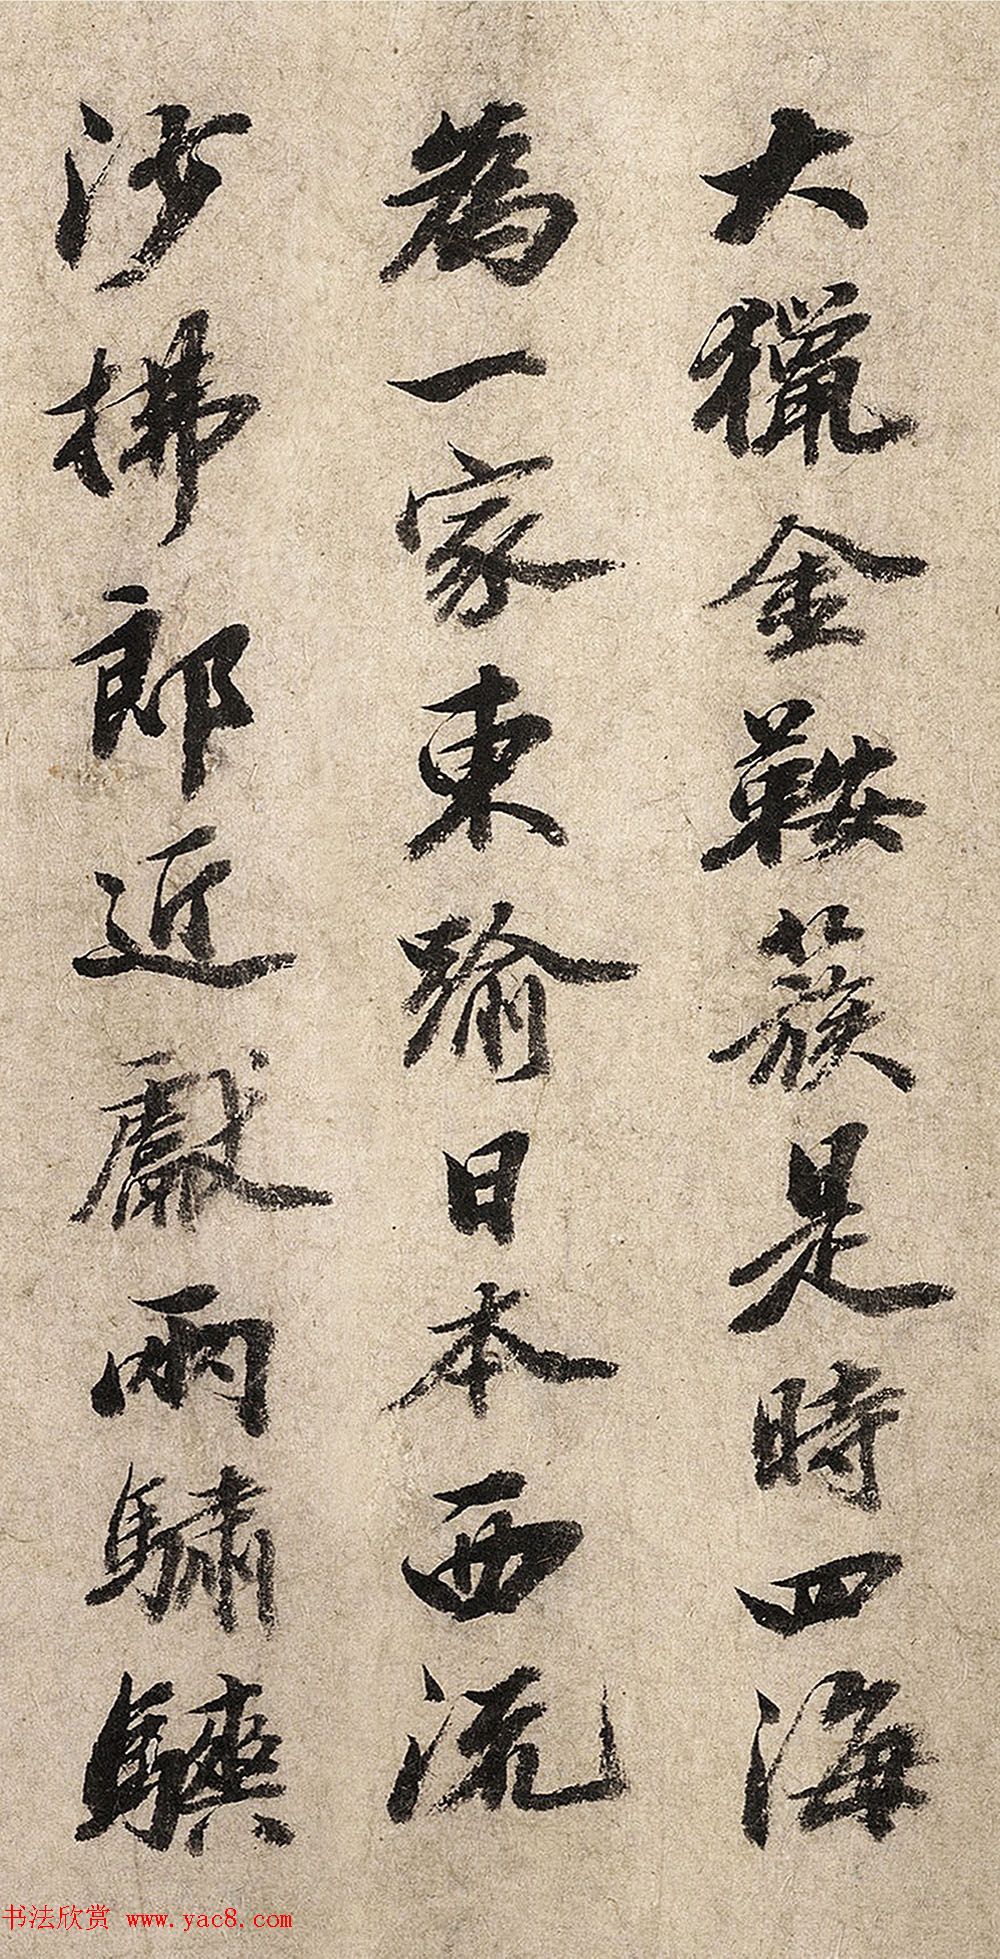 大獵金鞍簇是時四海
為一家東踰日本西流
沙拂郎近獻兩驌驥
书法欣赏 www.yac8.com